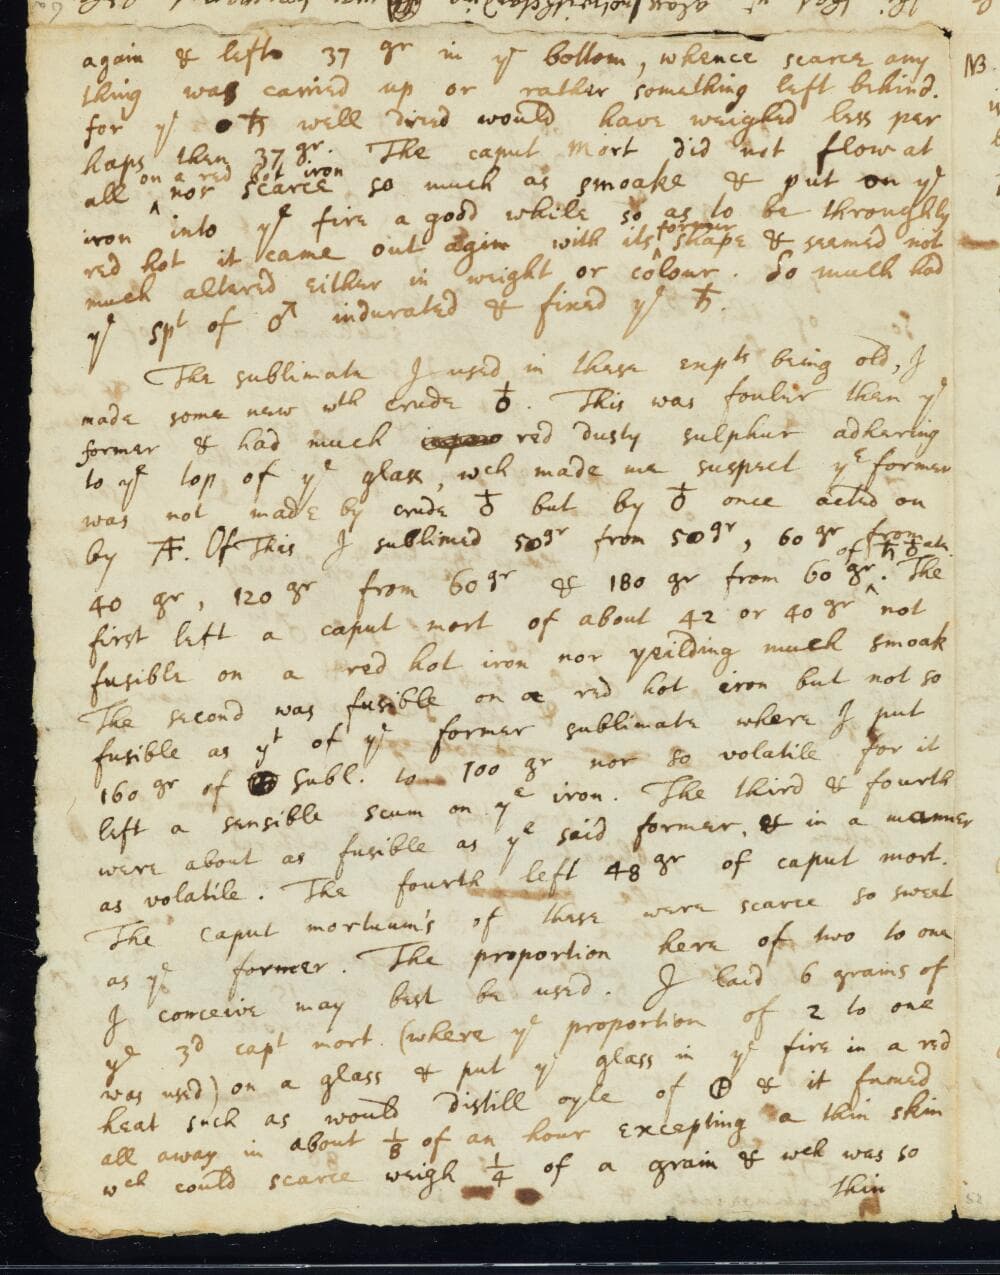 again & left 37 gr in ye bottom, whence scarce any
thing was carried up or rather something left behind.
for ye ♄ well dried would have weighed less per
haps then 37 gr. The caput mort did not flow at
all ‸ on a red hot iron nor scarce so much as smoake & put on ye
iron into ye fire a good while so as to be throughly
red hot it came out again with its ‸ former shape & seamed not
much altered either in weight or colour. So much had
ye spt of ♂ indurated & fixed ye ♄.
The sublimate I used in these expts being old, I
made some new wth crude ♁. This was fouler then ye
former & had much red dusty sulphur adhering
to ye top of ye glass, wch made me suspect ye former
was not made by crude ♁ but by ♁ once acted on
by . Of This I sublimed 50gr from 50gr, 60 gr from
40 gr, 120 gr from 60gr & 180 gr from 60 gr ‸ of ♄ . The
first left a caput mort of about 42 or 40 gr not
fusible on a red hot iron nor yeilding much smoak
The second was fusible on a red hot iron but not so
fusible as yt of ye former sublimate where I put
160 gr of Subl. to 100 gr nor so volatile for it
left a sensible scum on ye iron. The third & fourth
were about as fusible as ye said former, & in a manner
as volatile. The fourth left 48 gr of caput mort.
The caput mortuum's of these were scarce so sweet
as ye former. The proportion here of two to one
I conceive may best be used. I laid 6 grains of
ye 3d capt mort. (where ye proportion of 2 to one
was used) on a glass & put ye glass in ye fire in a red
heat such as would distill oyle of & it fumed
all away in about 1/8 of an hour excepting a thin skin
wch could scarce weigh 1/4 of a grain & wch was so
thin
NB